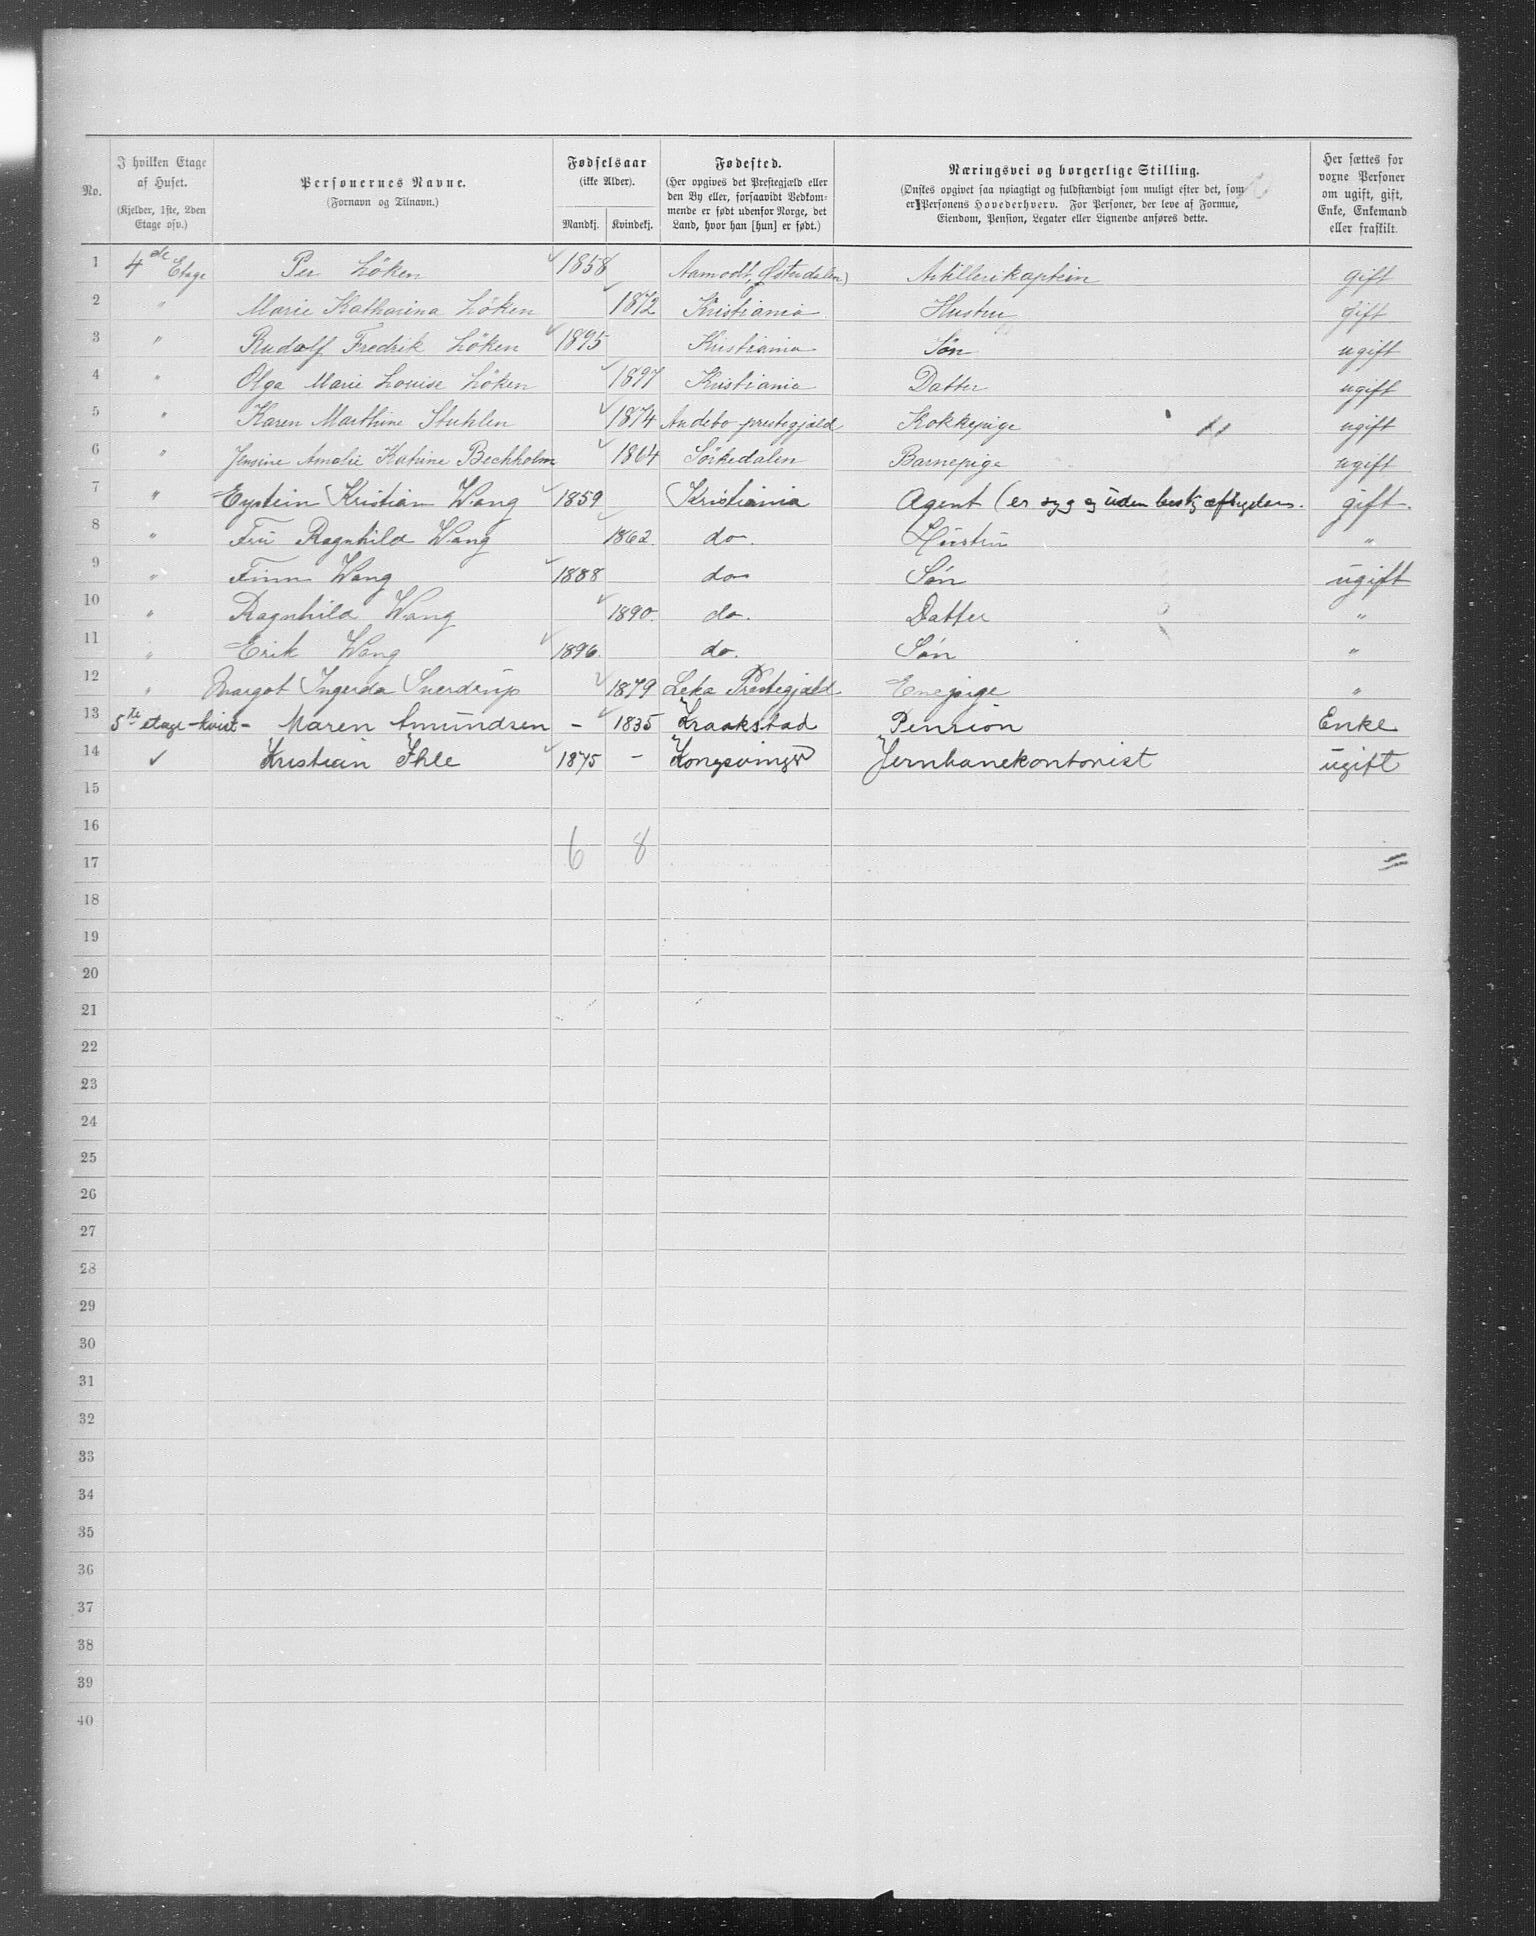 No. | I hvilken Etage af Huset. (Kjelder, 1ste, 2den Etage osv.) | Personernes Navne. (Fornavn og Tilnavn.) | Fødselsaar (ikke Alder). Mandkj. | Kvindekj. | Fødested. (Her opgives det Prestegjæld eller den By eller, forsaavidt Vedkommende er født udenfor Norge, det Land, hvor han [hun] er født.) | Næringsvei og borgerlige Stilling. (Ønskes opgivet saa nøiagtigt og fuldstændigt som muligt efter det, som er Personens Hovederhverv. For Personer, der leve af Formue, Eiendom, Pension, Legater eller Lignende anføres dette. | Her sættes for voxne Personer om ugift, gift, Enke, Enkemand eller fraskilt.
1 4de Etage Per Löken 1858 Aamodt, Østerdalen) Artillerikaptein gift
2 " Marie Katharina Löken 1872 Kristiania Hustru gift
3 " Rudolf Fredrik Löken 1895 Kristiania Søn ugift
4 " Olga Marie Louise Löken 1897 Kristiania Datter ugift
5 " Karen Marthine Stuhlen 1874 Andebo prestegjæld Kokkepige ugift
6 " Jensine Amalie Katrine Bechholm 1864 Sörkedalen Barnepige ugift
7 " Eystein Kristian Wang 1859 Kristiania Agent (er syg og uden gift.
8 " Fru Ragnhild Wang 1862. do. Hustru "
9 " Finn Wang 1888 do Søn ugift
10 " Ragnhild Wang 1890. do. Datter "
11 " Erik Wang 1896. do. Søn "
12 " Margot Ingerda Sverdrup 1879 Leka Prestegjæld. Enepige "
13 5te etage-kvist- Maren Amundsen - 1835 Kraakstad Pension Enke
14 Kristian Ihle 1875 - Kongsvinger Jernbanekontorist ugift
15
16
6 8
17
18
19
20
21
22
23
24
25
26
27
28
29
30
31
32
33
34
35
36
37
38
39
40